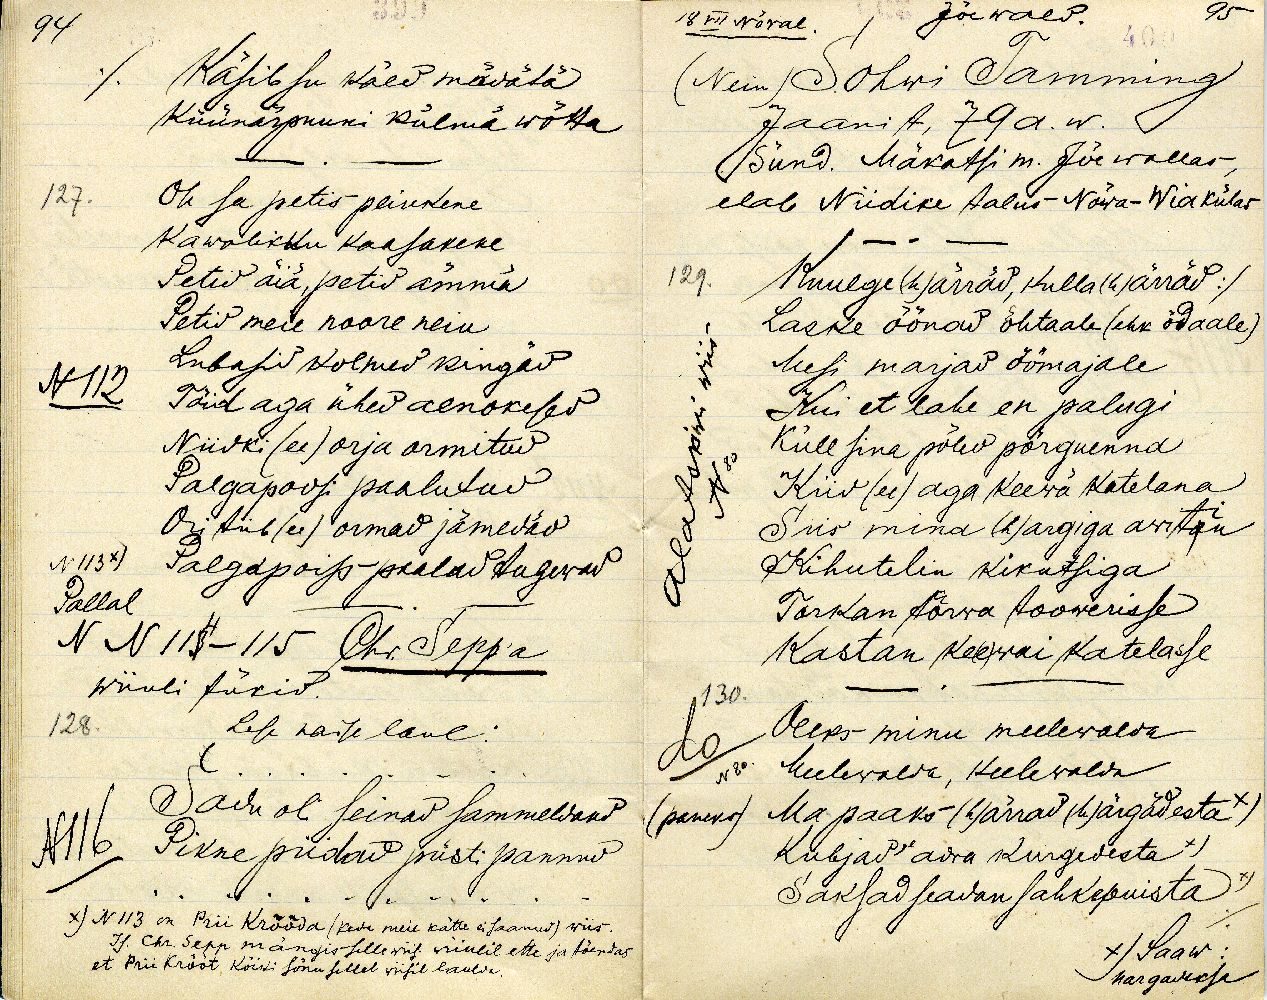 94
·/. Käsib su käed mädätä
Küünärpuuni külmä wõtta
127. Oh sa petis peiukene
Kawalikku kaasakene
Petid äiä, petid ämmä
Petid meie noore neiu
N 112
Lubasid kolmed kingäd
Tõid aga ühed aenokesed
Niidki (ee) orja ormitud
Palgapoosi paalutud
Ori tiib (ee) ormad jämedäd
N 113 x) Palgapoiss paalad tugewad
Pallal
N N 114-115 Chr. Seppa
wiiuli tükid.
128. Lese naise laul:
Saidu oli seinad sammeldand
Pikne piidad püsti pannud
N 116
x) N 113 on Prii Krööda (keda meie kätte ei saanud) wiis.
Chr. Sepp mängis selle wiisi wiiulil ette ja tõendas
et Prii Krööt kõiki sõnu sellel wiisil laulda.
18 VII Nõval. Jõewald. 95
400
(Neiu) Sohwi Tamming
Jaani t, 79 a. w.
Sünd. Mäkatsi m. Jõe wallas,
elab Niidike talus - Nõwa - Wiakülas
129. Kuulge (h)ärräd, kulla (h)ärräd :/
Laske öönad õhtaale (ehk õdaale)
Mesi marjad öömajale
Kui et lase en palugi
Küll sina põled põrguenna
Kiid (ee) aga keewä katelana
Siis mina (h)argiga awitan
Kihutelin kikutsiga
Torkan tõrwa toowerisse
Kastan keewai katelasse
Alatskiwi wiis
N 80
130. Oleks minu meelewalda
Do
N 80.
Meelewalda, keelewalda
(paneks) Ma paaks (h)ärrad (h)ärgädesta x)
Kubjad adra kurgedesta x)
Saksad seadan sahkpuista x)
x) Saaw:
hargadeksa